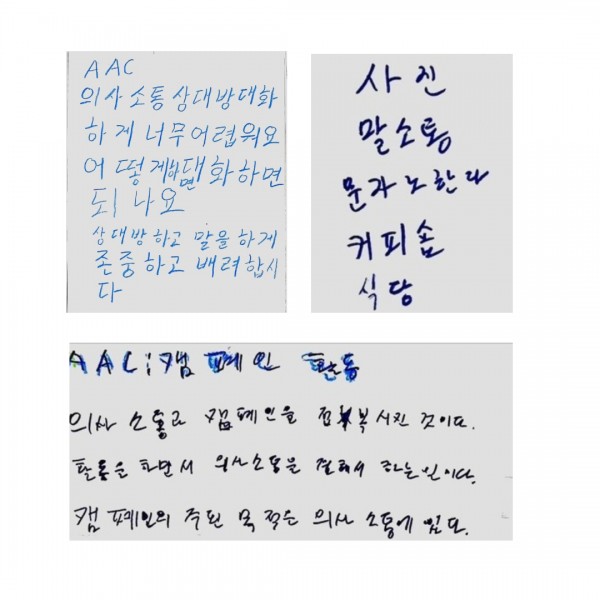 AAC
의사소통상대방대화
하게 너무어렵워요
어떻게하면대화하면
되나요
상대방하고 말을하게
존중하고 배려합시
다
사진
말소통
문자노한다
커피숍
식당
AAC:캠페인 활동
의사 소통로 캠페인을 접목시킨 것이다.
활동을 하면서 의사소통을 잘해서 하는인이다.
캠페인의 주된 목적은 의사 소통에 있다.